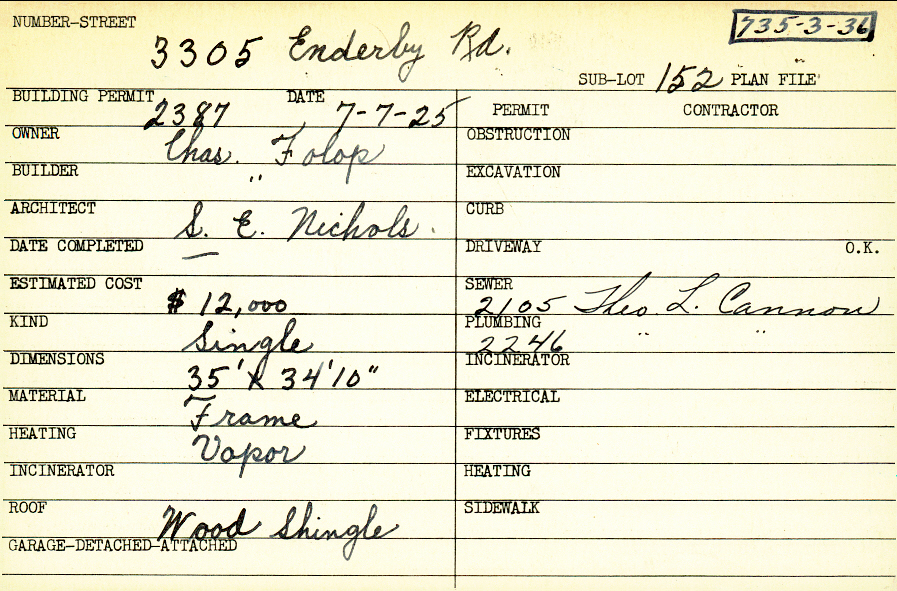 NUMBER-STREET
3305 Enderby Rd.
735-3-36
SUB-LOT 152 PLAN FILE
BUILDING PERMIT 2387 DATE 7-7-25
PERMIT CONTRACTOR
OWNER Chas. Folop
OBSTRUCTION
BUILDER "
EXCAVATION
ARCHITECT S. E. Nichols.
CURB
DATE COMPLETED —
DRIVEWAY O.K.
ESTIMATED COST $12,000
SEWER 2105 Theo. L. Cannon
KIND Single
PLUMBING 2246 " "
DIMENSIONS 35' X 34'10"
INCINERATOR
MATERIAL Frame
ELECTRICAL
HEATING Vapor
FIXTURES
INCINERATOR
HEATING
ROOF Wood Shingle
SIDEWALK
GARAGE-DETACHED-ATTACHED